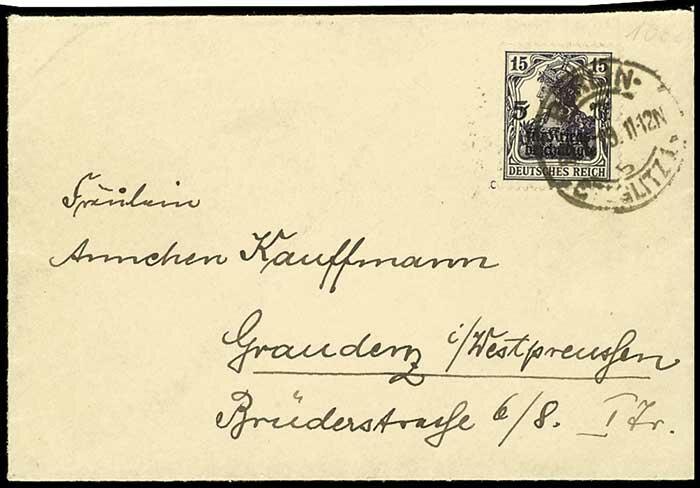 15 15
5
für Kriegs-
beschädigte
DEUTSCHES REICH
11-12N
Fräulein
Annchen Kauffmann
Graudenz i/Westpreussen
Brüderstrasse 6/8. I Tr.